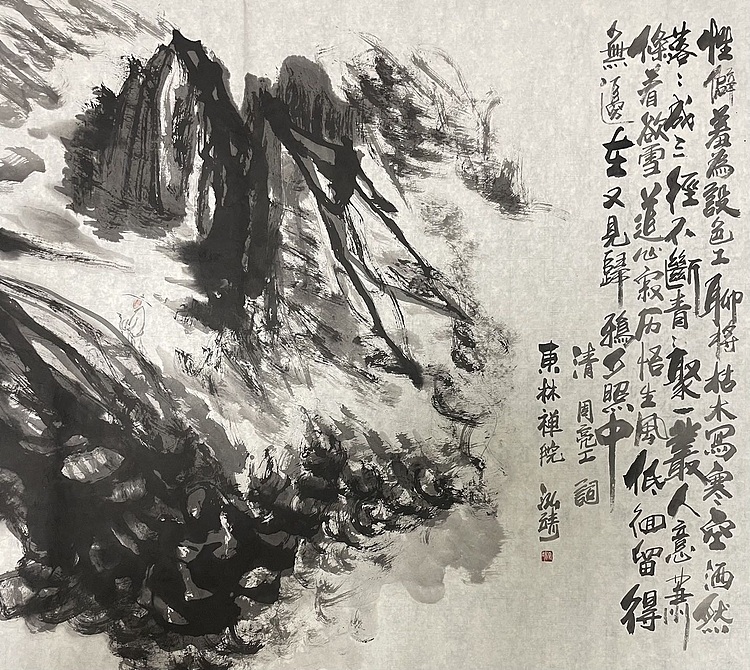 性僻羞為設色工聊將枯木寫寒空洒然
落〻成三徑不斷青〻聚一叢人意蕭
條看欲雪道心寂历悟生風低徊留得
無邊在又見歸鴉夕照中
清 周亮工 詞
東林禅院